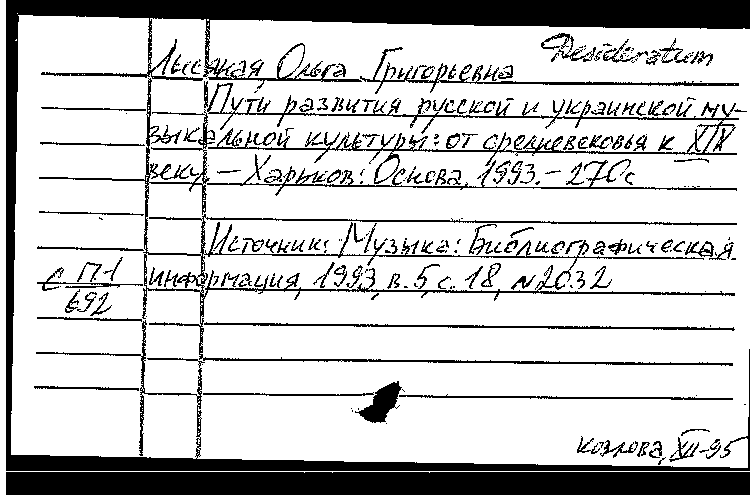 Desideratum
Лысяная, Ольга Григорьевна
Пути развития русской и украинской му-
зыкальной культуры: от средневековья к XIX
веку. – Харьков: Основа, 1993. – 270с
Источник: Музыка: Библиографическая
информация, 1993, в. 5, с. 18, N2032
с П-1
692
Козлова, XII-95